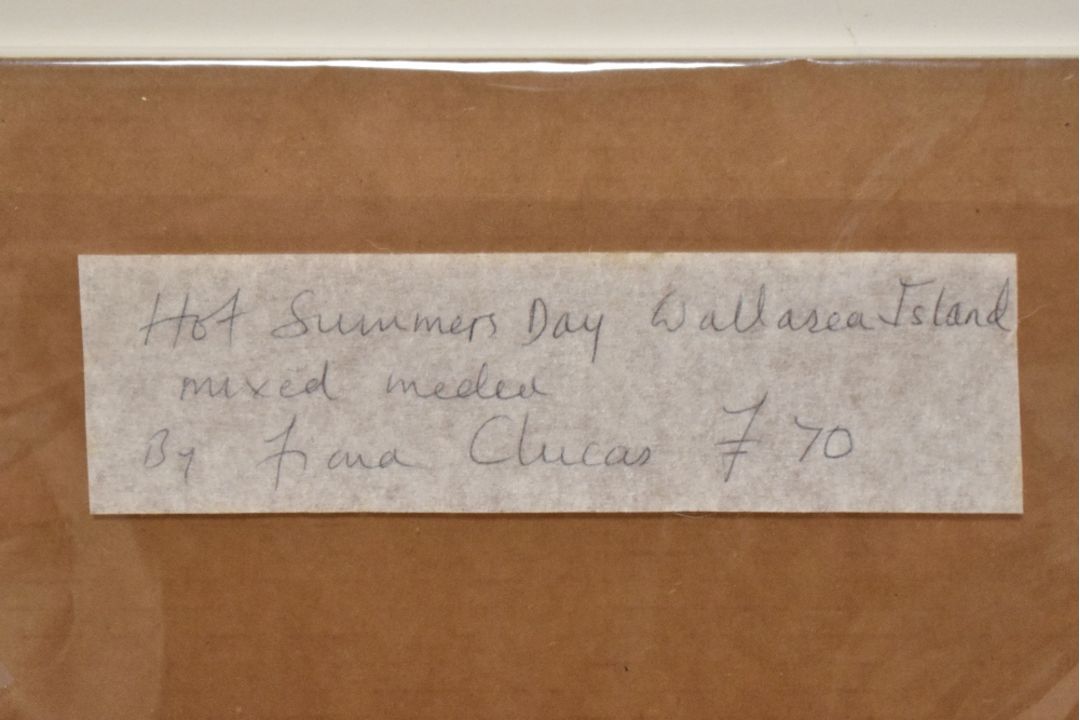 Hot Summers Day Wallasea Island
mixed media
By Fiona Clucas £70